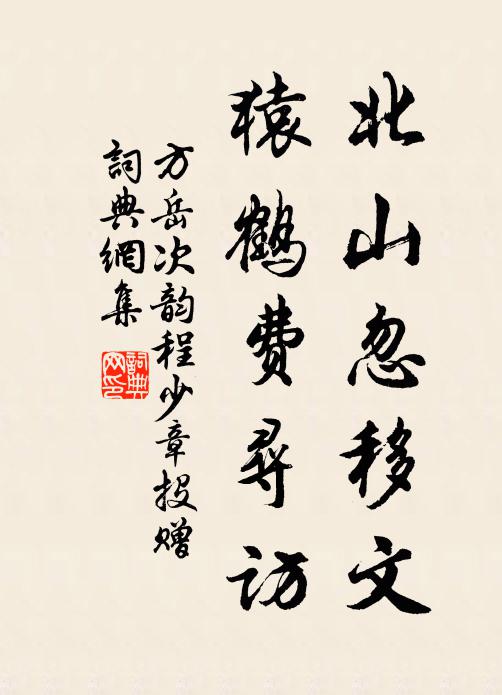 北山忽移文
猿鹤费寻访
方岳次韵程少章投赠
詞典網集
詞典网印